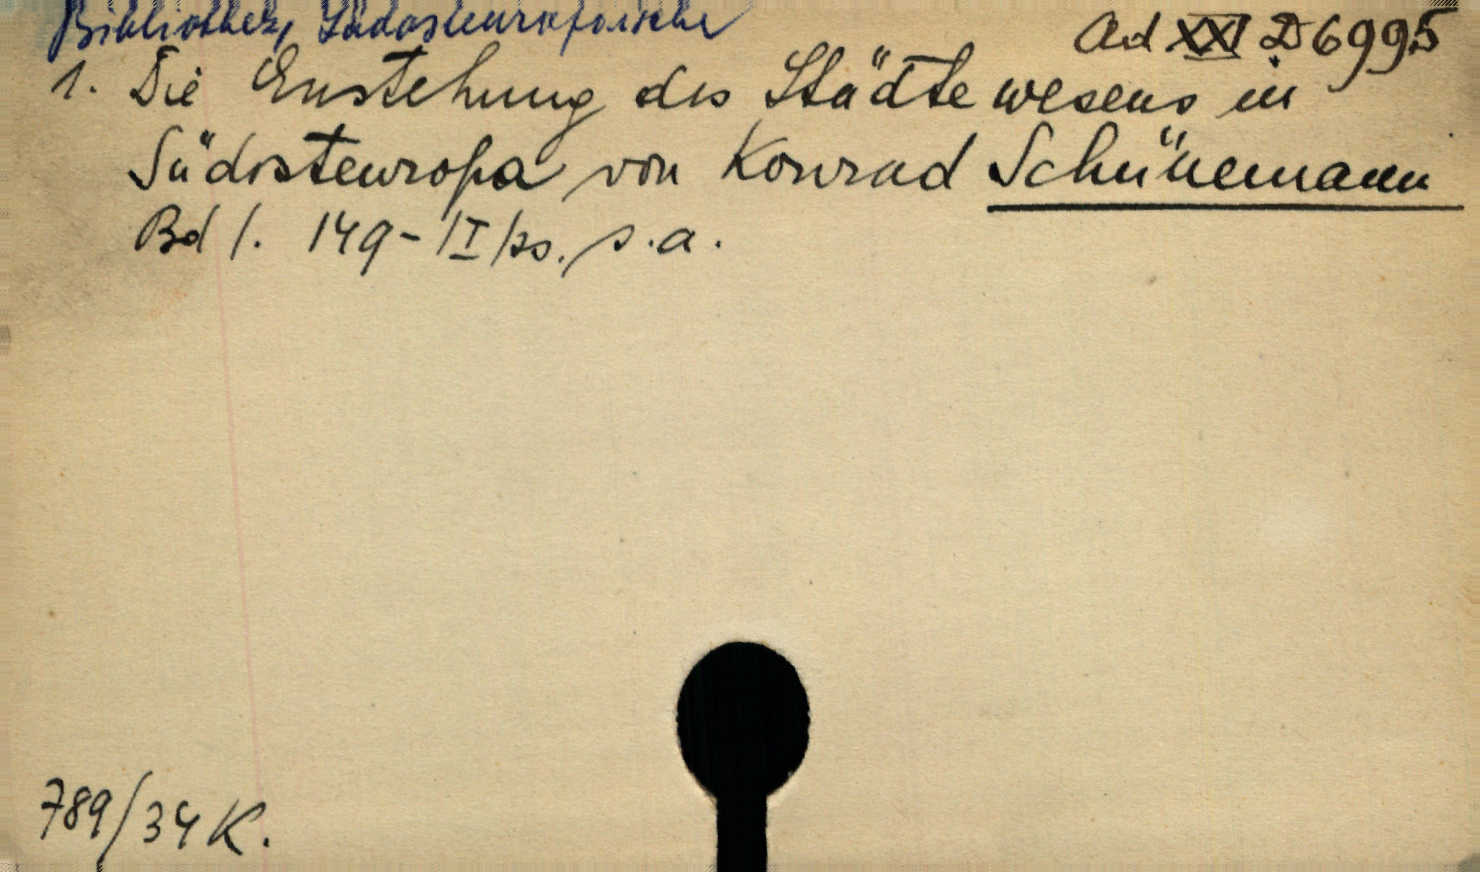 Bibliothek, Südosteuropäische
Ad XXI D 6995
1. Die Enstehung des Städtewesens in
Südosteuropa von Konrad Schünemann
Bd 1. 149 - s.a.
789/34 K.